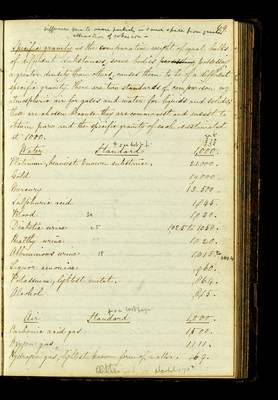 169.
difference due to more particles in same space from greater
attraction of cohesion
Specific gravity is the comparative weight of equal bulks
of different substances, some bodies possessing
a greater density than others, causes them to be of a different
specific gravity. there are two standards of comparison, viz
atmospheric air for gases and water for liquids and solids,
these are chosen because they are commonest and easiest to
obtain pure and the specific gravity of each is estimated
at 1000.
Water Standard 1,000.
Platinum, heaviest known substance. 21.000.
Gold 19,000.
Mercury 13.500.
Sulphuric acid 1845.
Blood 1030.
Diabetic urine 1025 to 1050.
Healthy urine 1020.
Albuminous urine 1015
Liquor ammoniæ 960.
Potassium, lightest metal. 864.
Alcohol 815.
Air Standard 1,000.
Carbonic acid gas 1500.
Oxygen gas 1111.
Hydrogen gas, lightest known form of matter. 69.